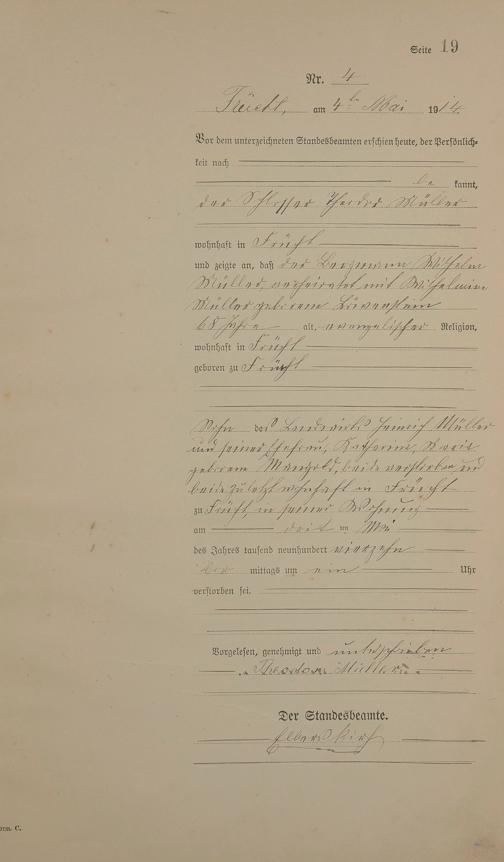 Seite 19
Nr. 4
Frücht, am 4ten Mai 1914.
Vor dem unterzeichneten Standesbeamten erschien heute, der Persönlich-
keit nach
be kannt,
der Schlosser Theodor Müller
wohnhaft in Frücht
und zeigte an, daß der Bergmann Wilhelm
Müller verheiratet mit Wilhelmine
Müller geborene Löwenstein
68 Jahre alt, evangelischer Religion,
wohnhaft in Frücht
geboren zu Frücht
Sohn des Landwirts Heinrich Müller
und seiner Ehefrau, Katharine,
geborene Mangold, beide verstorben und
beide zuletzt wohnhaft in Frücht
zu Frücht, in seiner Wohnung
am drit en Mai
des Jahres tausend neunhundert vierzehn
mittags um ein Uhr
verstorben sei.
Vorgelesen, genehmigt und unterschrieben
Theodor Müller
Der Standesbeamte.
Elbers Kirch
C.